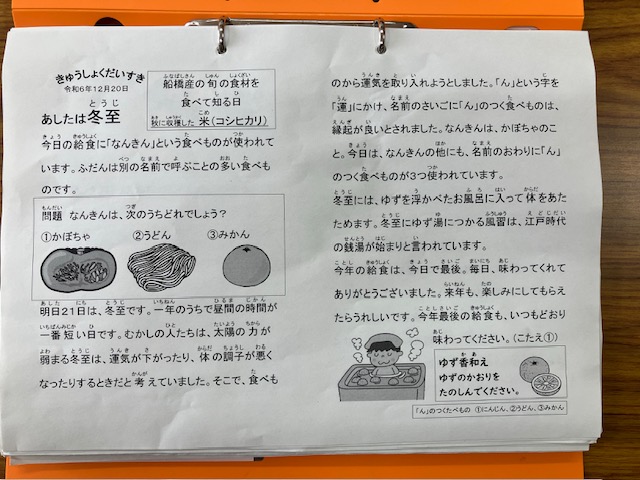 きゅうしょくだいすき
令和6年12月20日
あしたは冬至
船橋産の旬の食材を
食べて知る日
秋に収穫した 米(コシヒカリ)
今日の給食に「なんきん」という食べものが使われて
います。ふだんは別の名前で呼ぶことの多い食べも
のです。
問題 なんきんは、次のうちどれでしょう?
①かぼちゃ ②うどん ③みかん
明日21日は、冬至です。一年のうちで昼間の時間が
一番短い日です。むかしの人たちは、太陽の力が
弱まる冬至は、運気が下がったり、体の調子が悪く
なったりするときだと考えていました。そこで、食べも
のから運気を取り入れようとしました。「ん」という字を
「運」にかけ、名前のさいごに「ん」のつく食べものは、
縁起が良いとされました。なんきんは、かぼちゃのこ
と。今日は、なんきんの他にも、名前のおわりに「ん」
のつく食べものが3つ使われています。
冬至には、ゆずを浮かべたお風呂に入って体をあた
ためます。冬至にゆず湯につかる風習は、江戸時代
の銭湯が始まりと言われています。
今年の給食は、今日で最後。毎日、味わってくれて
ありがとうございました。来年も、楽しみにしてもらえ
たらうれしいです。今年最後の給食も、いつもどおり
味わってください。(こたえ①)
ゆず香和え
ゆずのかおりを
たのしんでください。
「ん」のつくたべもの ①にんじん、②うどん、③みかん